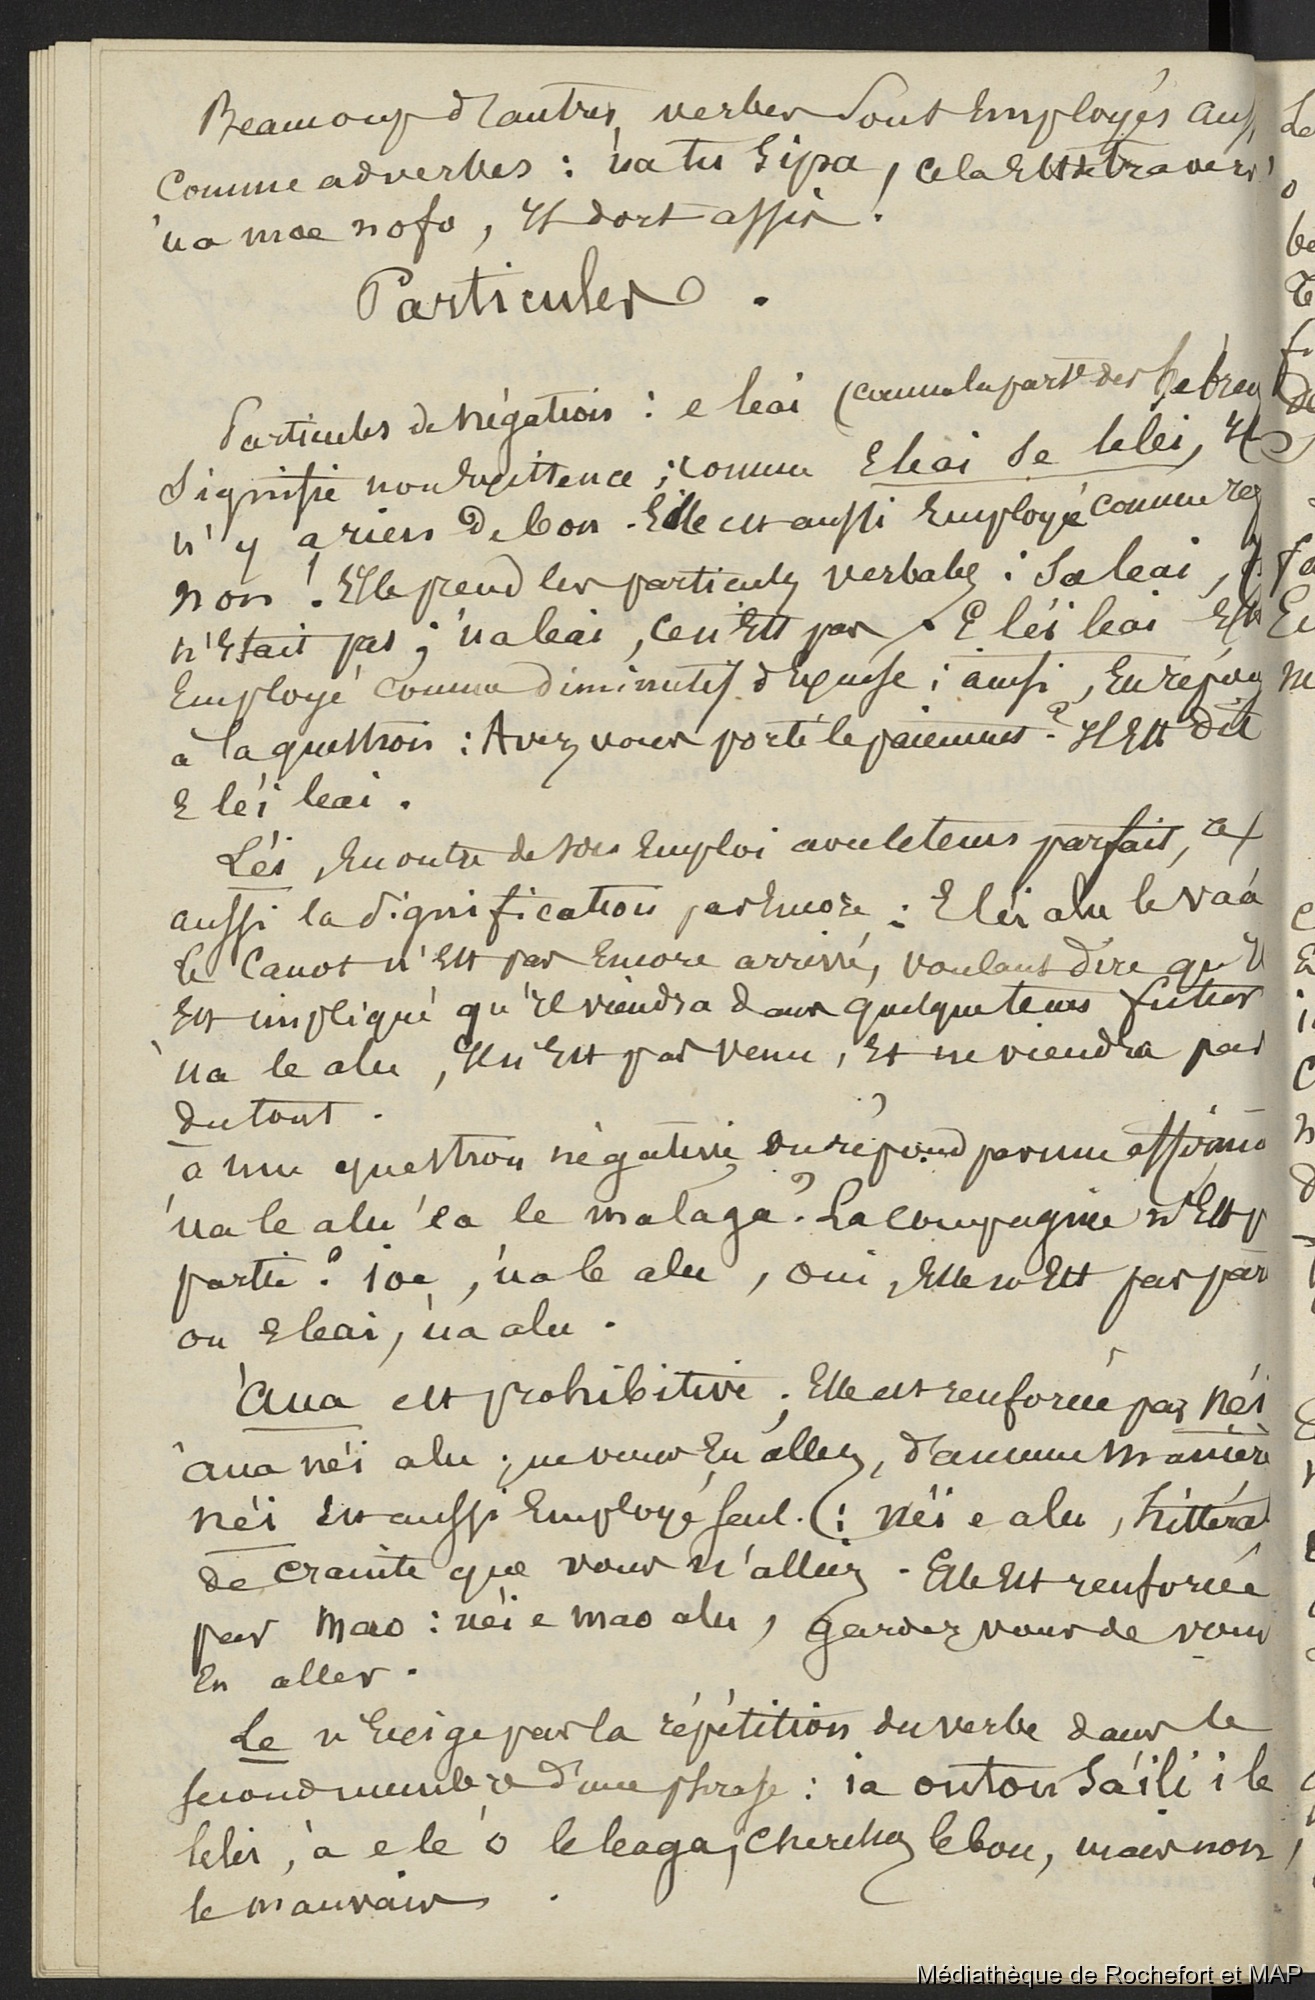 Beaucoup d'autres verbes sont employés aus
comme adverbes : 'ua tu sipa, cela est de travers
'ua moe nofo, il dort assis.
Particules.
Particules de négation : e leai (comme la part. des hébreu
signifie non existence ; comme e leai se lelei, il
n'y a rien de bon. Elle est aussi employé comme
non ! Elle prend les particules verbales : sa leai,
n'était pas ; 'ua leai, ce n'est pas. E léi leai est
employé comme diminutif d'excuse ; ainsi, en répon
à la question : Avez vous porté le paiement ? Il est dit
E léi leai.
Léi, en outre de son emploi avec le tems parfait, a
aussi la signification pas encore : E léi alu le vaá
le canot n'est pas encore arrivé, voulant dire qu'il
est impliqué qu'il viendra dans quelque tems futur
'ua le alu, il n'est pas venu, et ne viendra pas
du tout.
à une question négative on répond par une affirma
'ua le alu 'ea le malaga ? La compagnie n'est p
partie ? ioe, 'ua le alu, oui, elle n'est pas par
ou e leai, 'ua alu.
'Aua est prohibitive. Elle est renforcée par néi
'aua néi alu ; ne vous en allez, d'aucune manièr
néi est aussi employé seul. (: néi e alu, littéra
de crainte que vous n'alliez. Elle est renforcée
par mao : néi e mao alu, gardez vous de vous
en aller.
Le n'exige pas la répétition du verbe dans le
second membre d'une phrase : ia outou sa'ili i le
lelei, 'a e le 'o le leaga, cherchez le bon, mais non
le mauvais.
Médiathèque de Rochefort et MAP